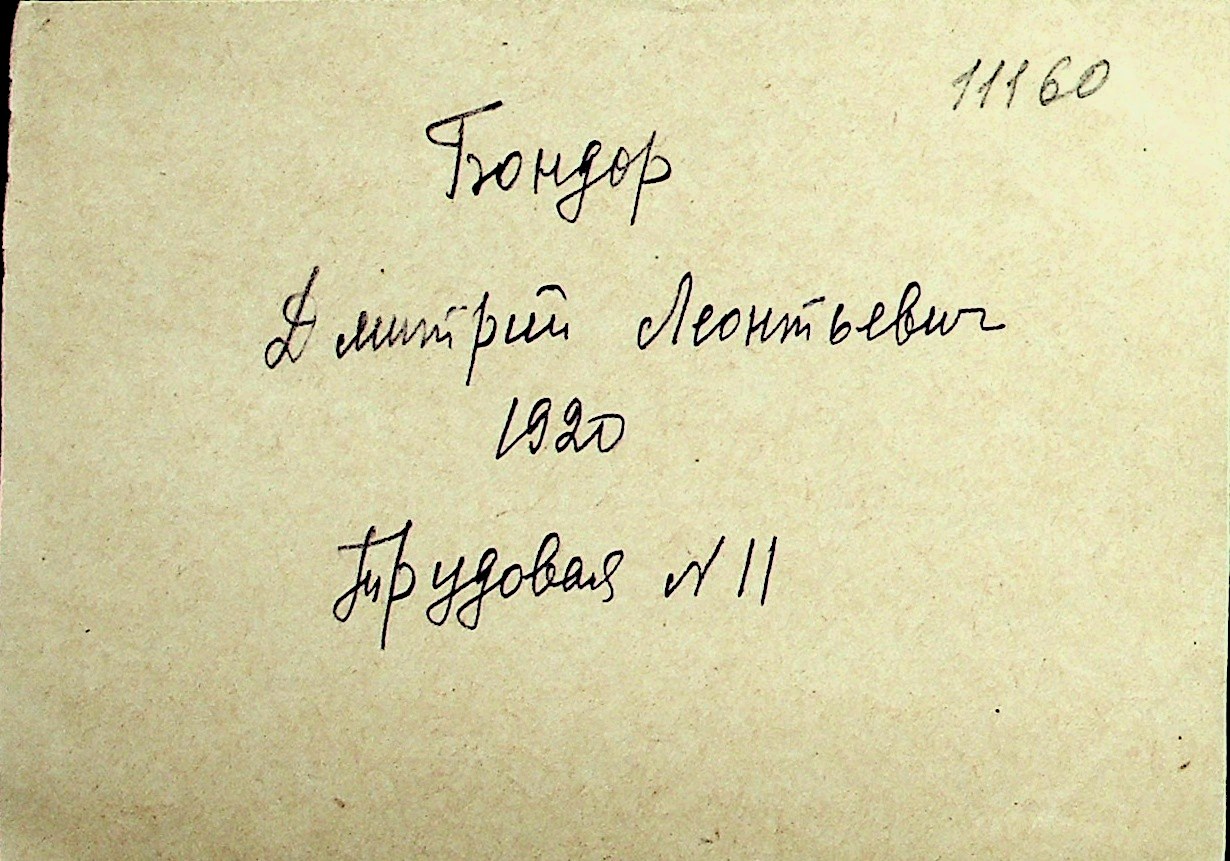 11160
Бондор
Дмитрий Леонтьевич
1920
Трудовая N 11